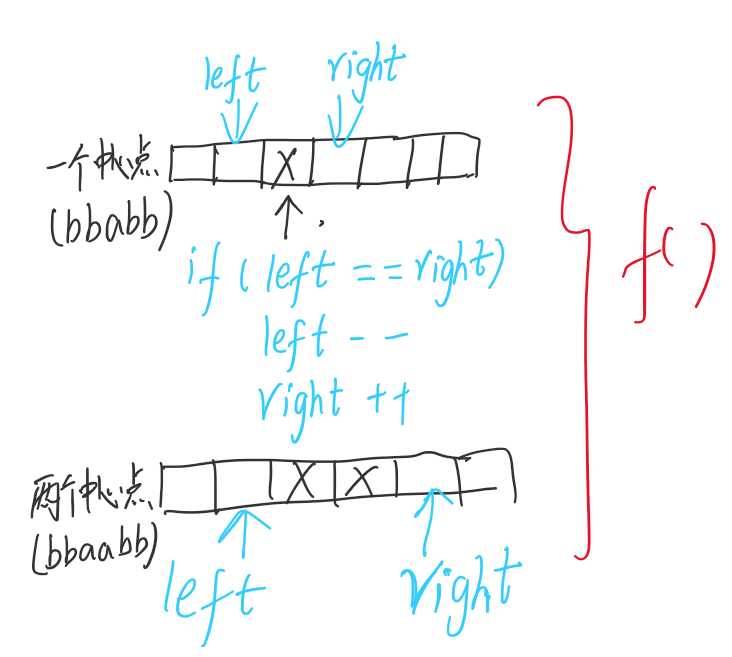 left right
一个中心点 X
(bbabb)
if (left == right)
left --
right ++
f()
两个中心点 X X
(bbaabb)
left right